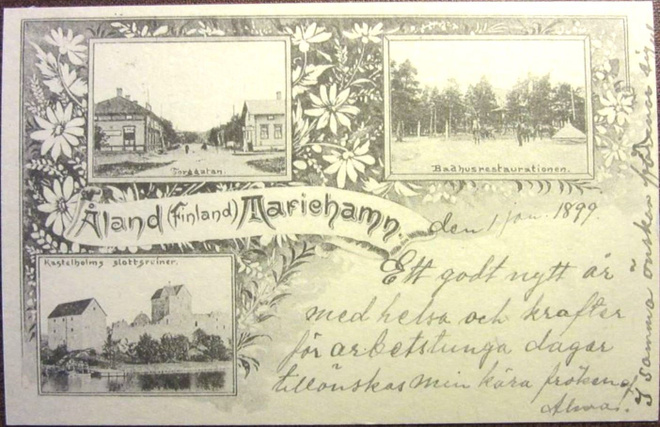 Torggatan.
Badhusrestaurationen.
Åland (Finland) Mariehamn.
Kastelholms slottsruiner.
den 1 jan. 1899
Ett godt nytt år
med helsa och krafter
för arbetstunga dagar
tillönskas min kära fröken af
I samma önskan